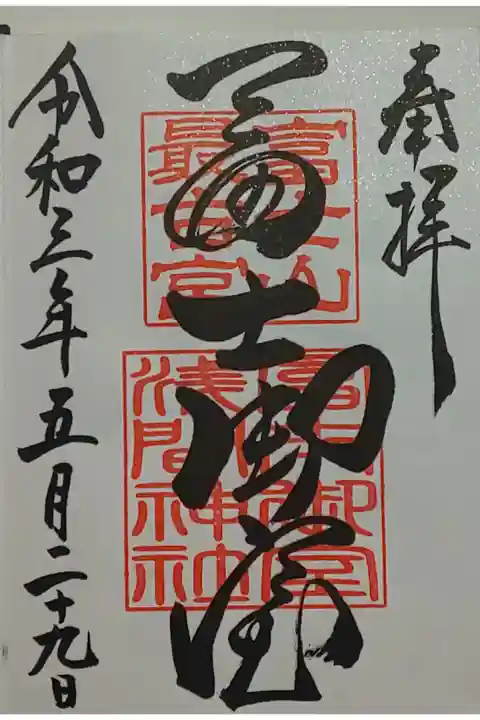 奉拝
富士御室
富士山
最古宮
冨士御室
浅間神社
令和三年五月二十九日